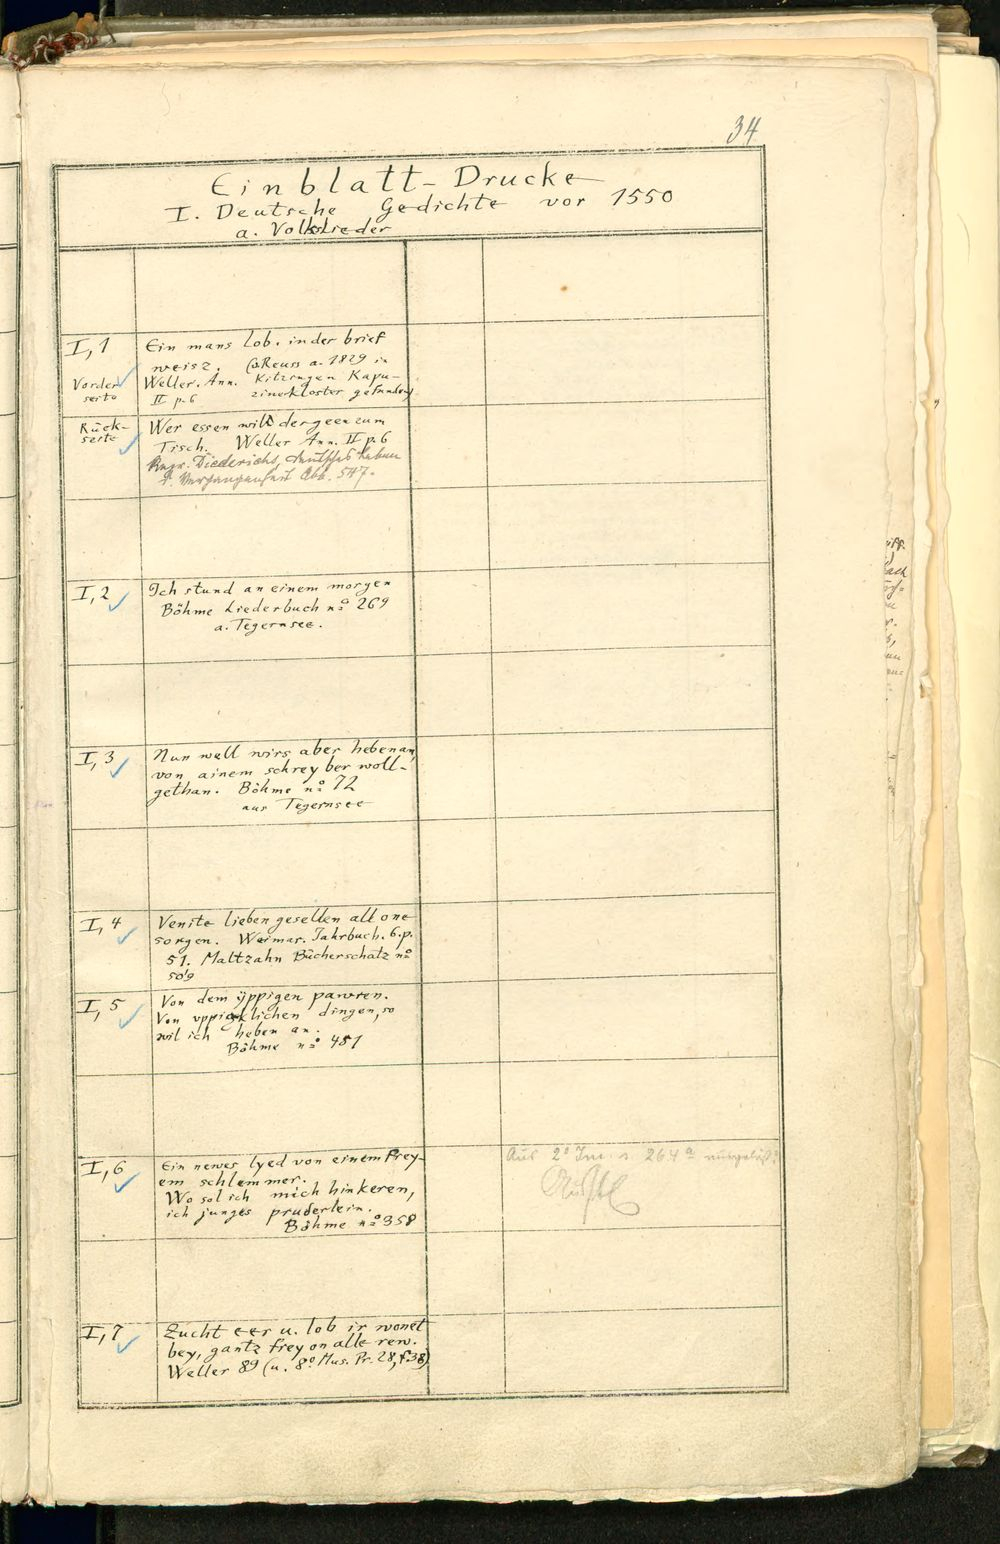 34
Einblatt-Drucke
I. Deutsche Gedichte vor 1550
a. Volkslieder
I, 1 Ein mans lob. in der brief
weisz. (v. Reuss a. 1829 in
Vorder Weller. Ann. Kitzingen Kapu-
seite II p. 6 zinerkloster gefunden)
Rück- Wer essen will der gee zum
seite Tisch. Weller Ann. II p. 6
Diederichs, deutsches Leben
d. Vergangenheit Abb. 547.
I, 2 Ich stund an einem morgen
Böhme Liederbuch no 269
a. Tegernsee.
I, 3 Nun well wirs aber heben an,
von ainem schreyber woll-
gethan. Böhme no 72
aus Tegernsee
I, 4 Venite lieben gesellen all one
sorgen. Weimar. Jahrbuch. 6. p.
51. Maltzahn Bücherschatz no
509
I, 5 Von dem ÿppigen pawren.
Von vppigklichen dingen, so
wil ich heben an.
Böhme no 451
I, 6 Ein newes lyed von einem frey-
em schlemmer.
Wo sol ich mich hinkeren,
ich junges pruderlein.
Böhme no 358
Aus 2o Inc. 264 a
I, 7 Zucht eer u. lob ir wonet
bey, gantz frey on alle rew.
Weller 89 (u. 8o Mus. Pr. 28, f. 38)